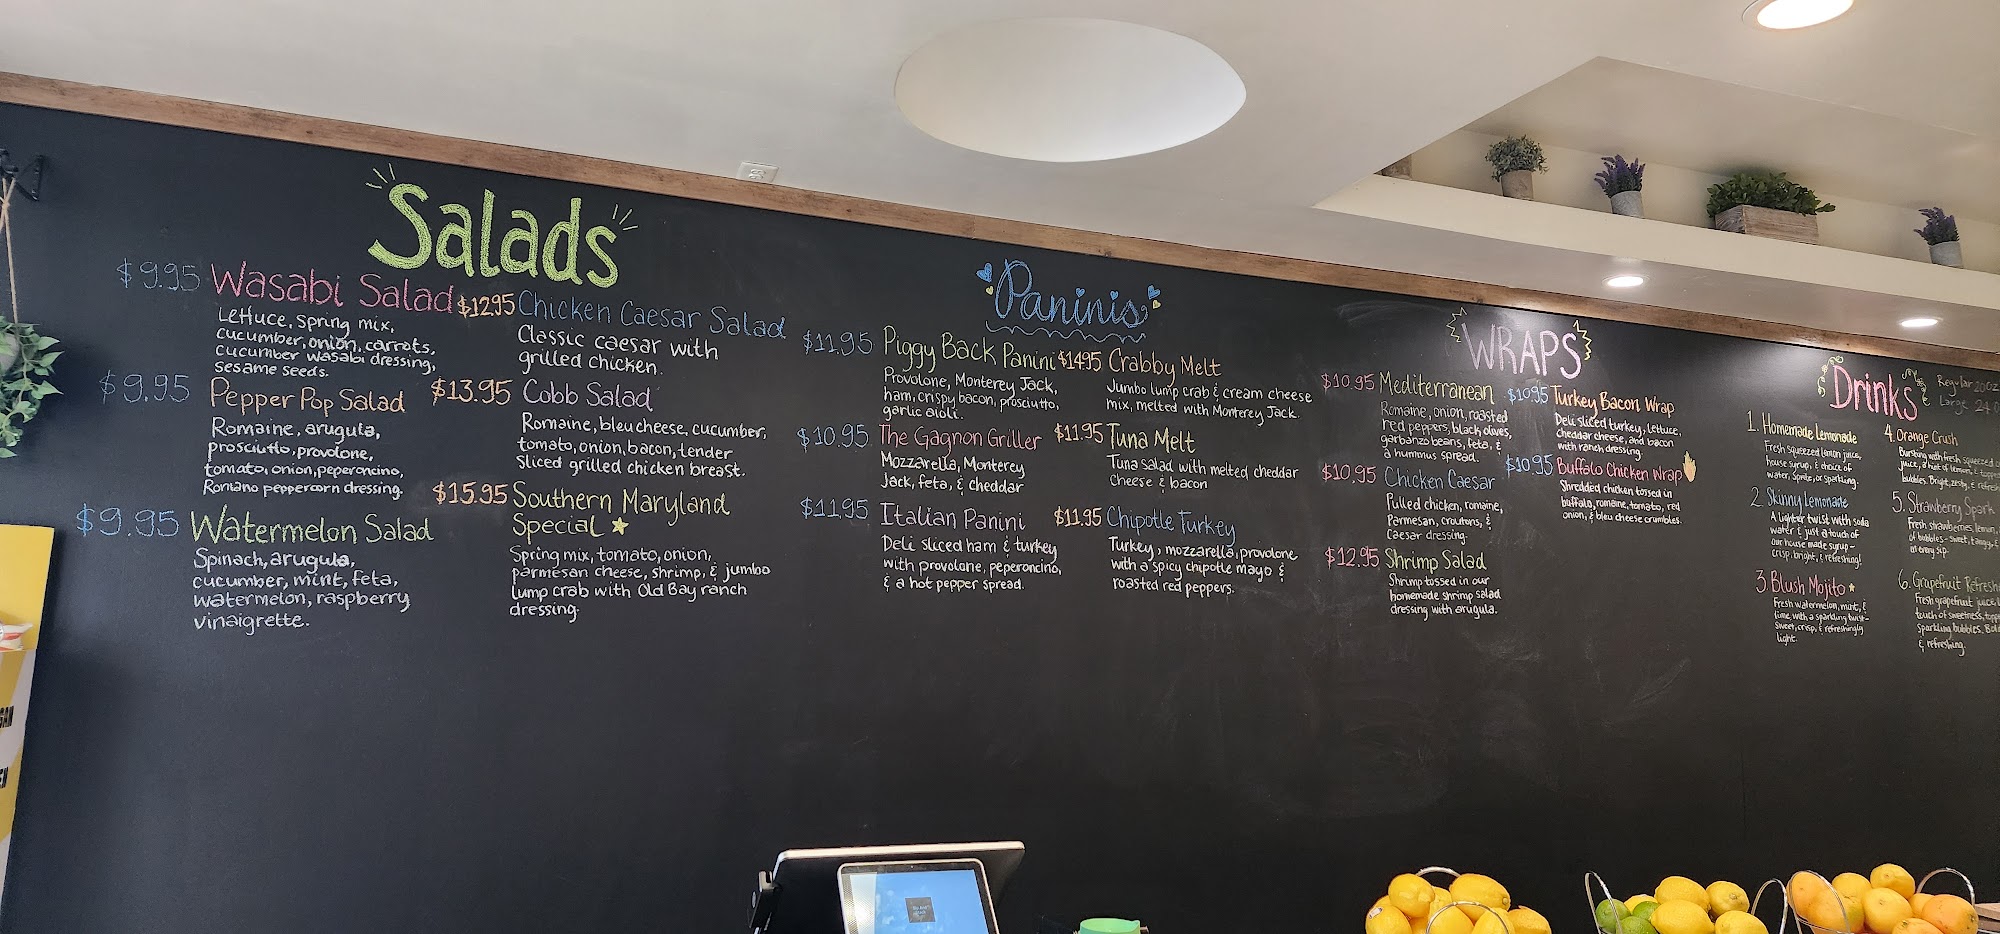 Salads
$9.95 Wasabi Salad
Lettuce, spring mix,
cucumber, onion, carrots,
cucumber wasabi dressing,
sesame seeds.
$9.95 Pepper Pop Salad
Romaine, arugula,
prosciutto, provolone,
tomato, onion, peperoncino,
Romano peppercorn dressing.
$9.95 Watermelon Salad
Spinach, arugula,
cucumber, mint, feta,
watermelon, raspberry
vinaigrette.
$12.95 Chicken Caesar Salad
Classic caesar with
grilled chicken.
$13.95 Cobb Salad
Romaine, bleu cheese, cucumber,
tomato, onion, bacon, tender
sliced grilled chicken breast.
$15.95 Southern Maryland
Special
Spring mix, tomato, onion,
parmesan cheese, shrimp, & jumbo
lump crab with Old Bay ranch
dressing.
Paninis
$11.95 Piggy Back Panini
Provolone, Monterey Jack,
ham, crispy bacon, prosciutto,
garlic aioli.
$10.95 The Gagnon Griller
Mozzarella, Monterey
Jack, feta, & cheddar
$11.95 Italian Panini
Deli sliced ham & turkey
with provolone, peperoncino,
& a hot pepper spread.
$14.95 Crabby Melt
Jumbo lump crab & cream cheese
mix, melted with Monterey Jack.
$11.95 Tuna Melt
Tuna salad with melted cheddar
cheese & bacon
$11.95 Chipotle Turkey
Turkey, mozzarella, provolone
with a spicy chipotle mayo &
roasted red peppers.
WRAPS
$10.95 Mediterranean
Romaine, onion, roasted
red peppers, black olives,
garbanzo beans, feta, &
a hummus spread.
$10.95 Chicken Caesar
Pulled chicken, romaine,
Parmesan, croutons, &
caesar dressing.
$12.95 Shrimp Salad
Shrimp tossed in our
homemade shrimp salad
dressing with arugula.
$10.95 Turkey Bacon Wrap
Deli sliced turkey, lettuce,
cheddar cheese, and bacon
with ranch dressing
$10.95 Buffalo Chicken Wrap
Shredded chicken tossed in
buffalo, romaine, tomato, red
onion, & bleu cheese crumbles.
Drinks
Regular 20oz
Large 24
1. Homemade Lemonade
Fresh squeezed lemon juice,
house syrup, & choice of
water, Sprite, or sparkling.
2. Skinny Lemonade
A lighter twist with soda
water & just a touch of
our house made syrup -
crisp, bright, & refreshing!
3. Blush Mojito
Fresh watermelon, mint, &
lime, with a sparkling twist-
sweet, crisp, & refreshingly
light.
4. Orange Crush
Bursting with fresh squeezed
juice, a hint of lemon, & topped
bubbles. Bright, zesty, &
5. Strawberry Spark
Fresh strawberries, lemon,
of bubbles - sweet, tangy, &
in every sip.
6. Grapefruit
Fresh grapefruit juice,
touch of sweetness,
sparkling bubbles.
& refreshing.